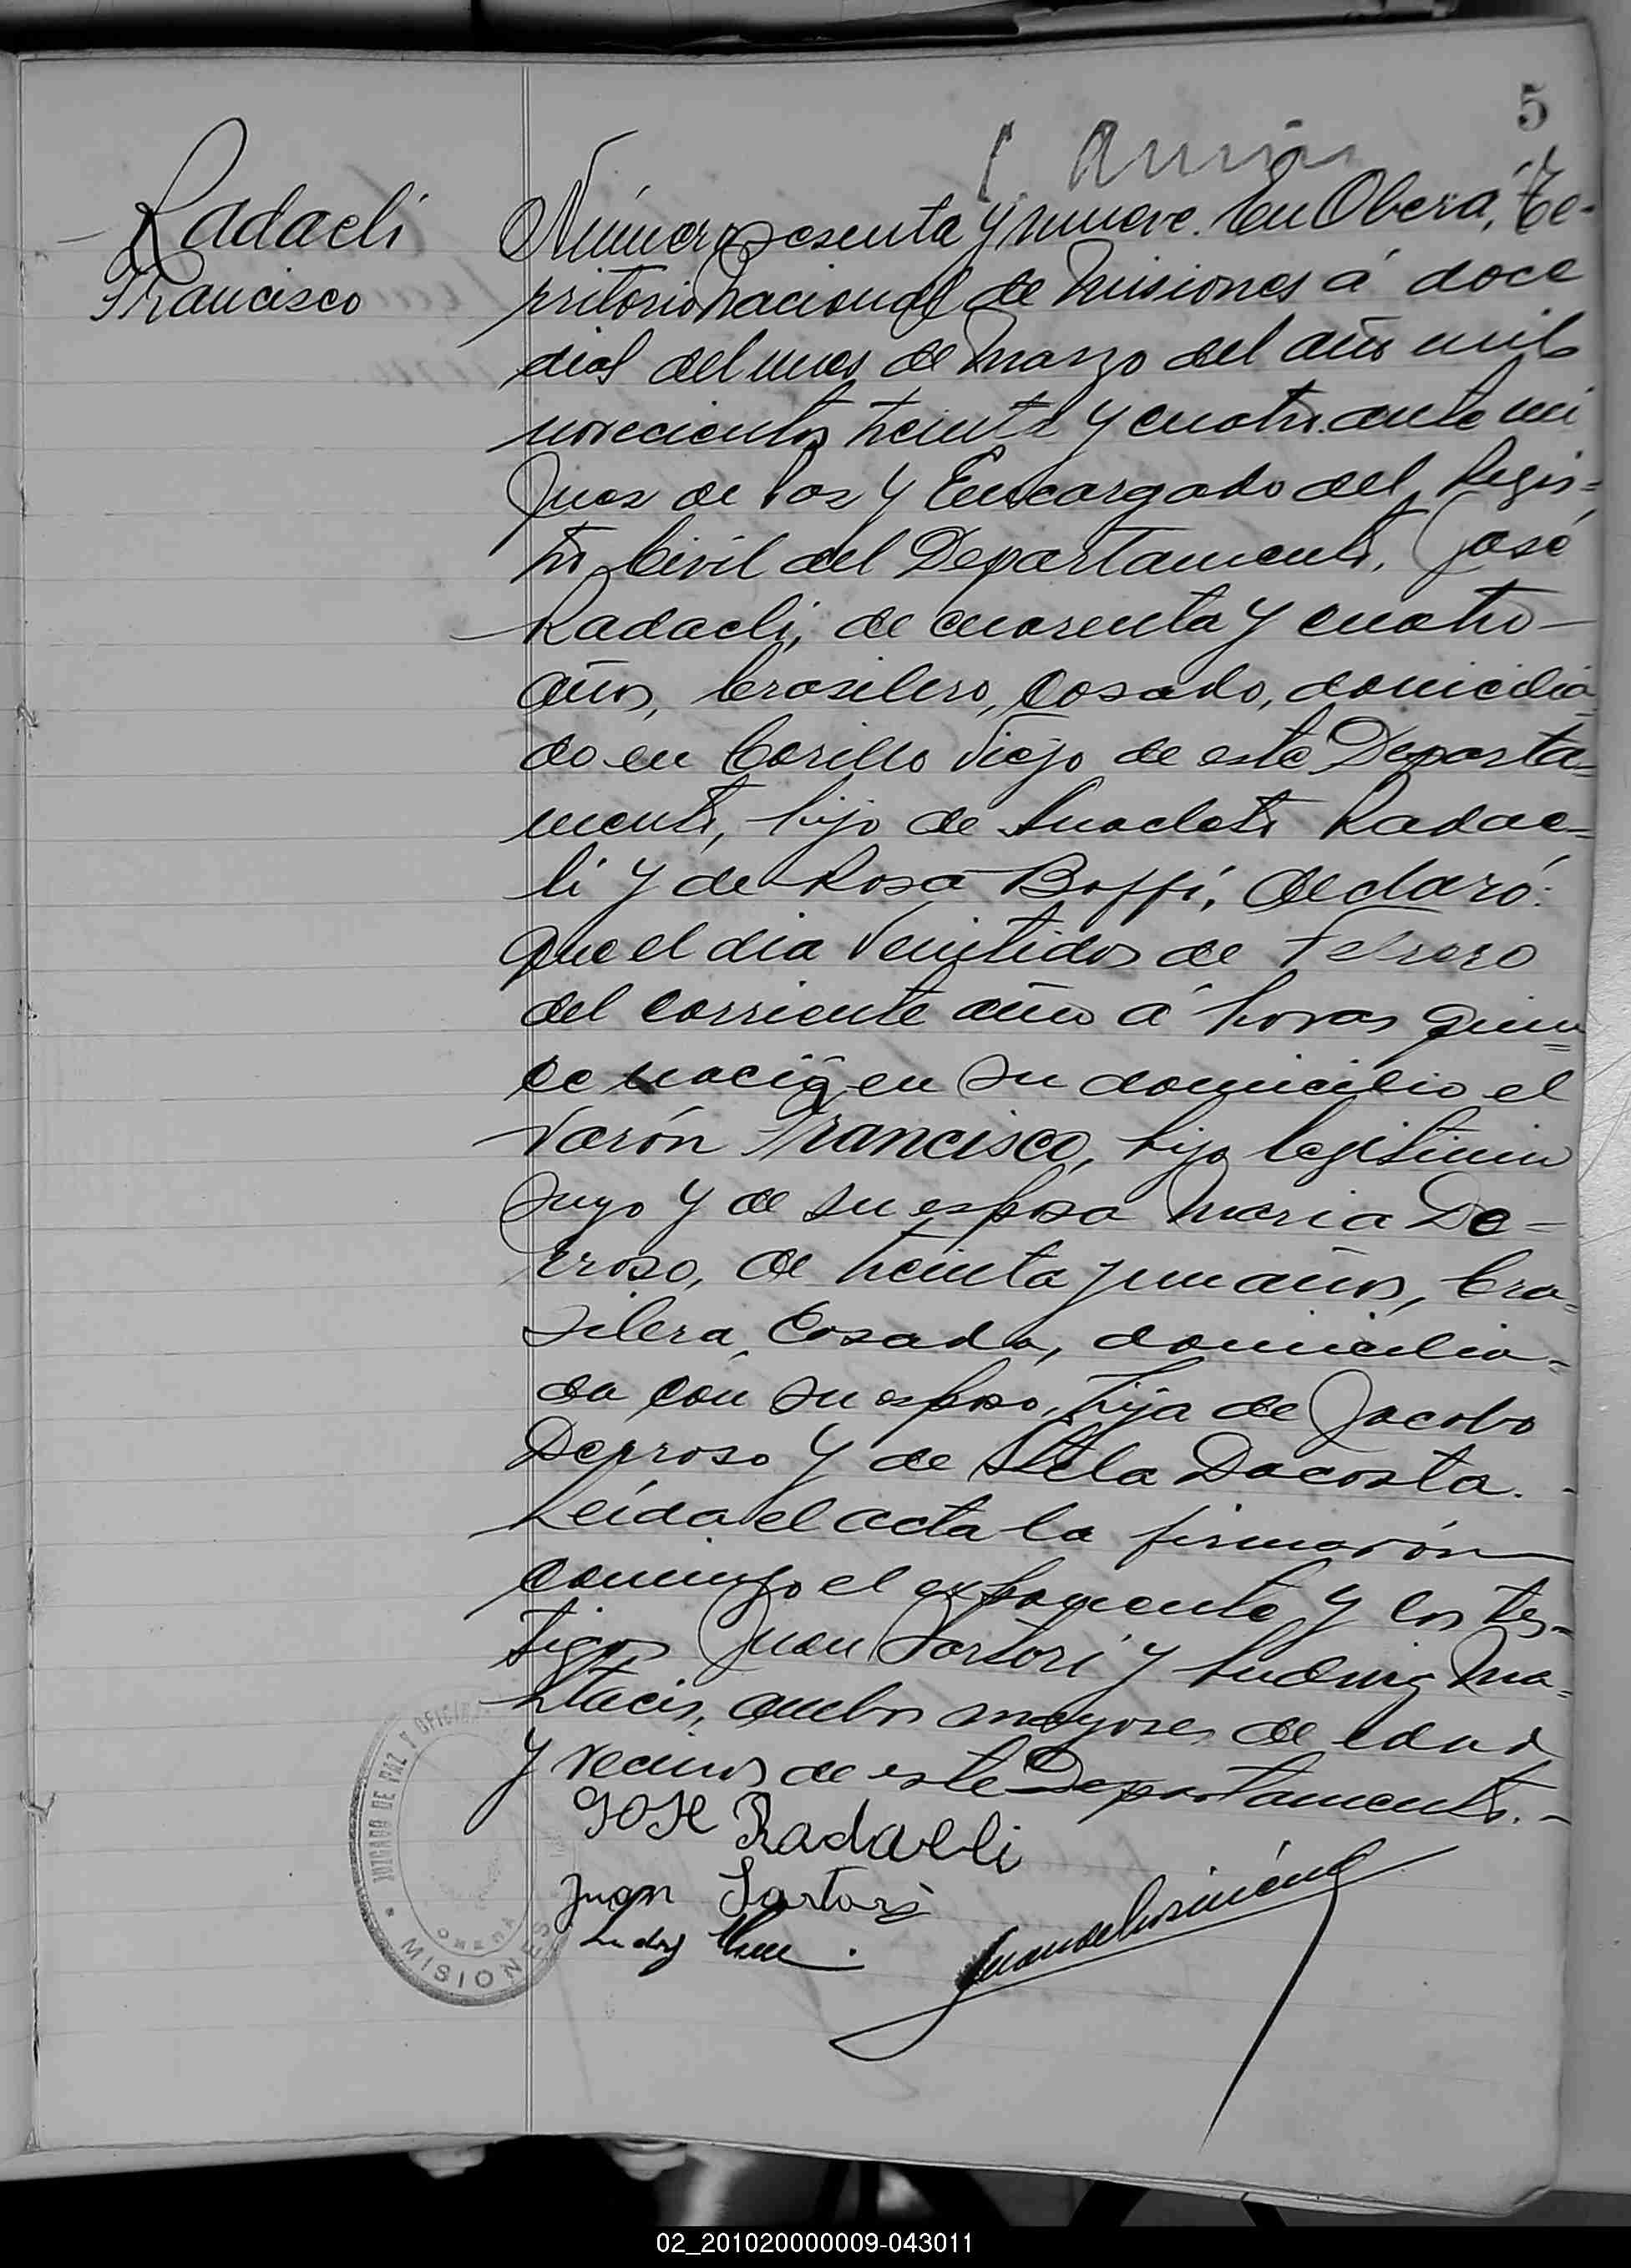 5
Radaeli
Francisco
Número sesenta y nueve. En Oberá, Te-
rritorio Nacional de Misiones á doce
dias del mes de Marzo del año mil
novecientos treinta y cuatro ante mi
Juez de Paz y Encargado del Regis=
tro Civil del Departamento, José
Radaeli, de cuarenta y cuatro
años, brasilero, casado, domicilia-
do en Cerillo Viejo de este Departa=
mento, hijo de Anacleto Radae=
li y de Rosa Boffi, declaró:
que el dia veintidos de Febrero
del corriente año á horas quin=
ce nació en su domicilio el
varón Francisco, hijo legitimo
suyo y de su esposa Maria De=
rroso, de treinta y un años, bra-
silera, casada, domicilia=
da con su esposo, hija de Jacobo
Derroso y de Stela Dacosta.-
Leída el acta la firmarón
conmigo el exponente y los tes=
tigos Juan Sartori y Ludwig Ma=
, ambos mayores de edad
y vecinos de este Departamento.-
JOSE Radaelli
Juan Sartori
JUZGADO DE PAZ Y OFICI
OBERA
MISIONES
02_201020000009-043011